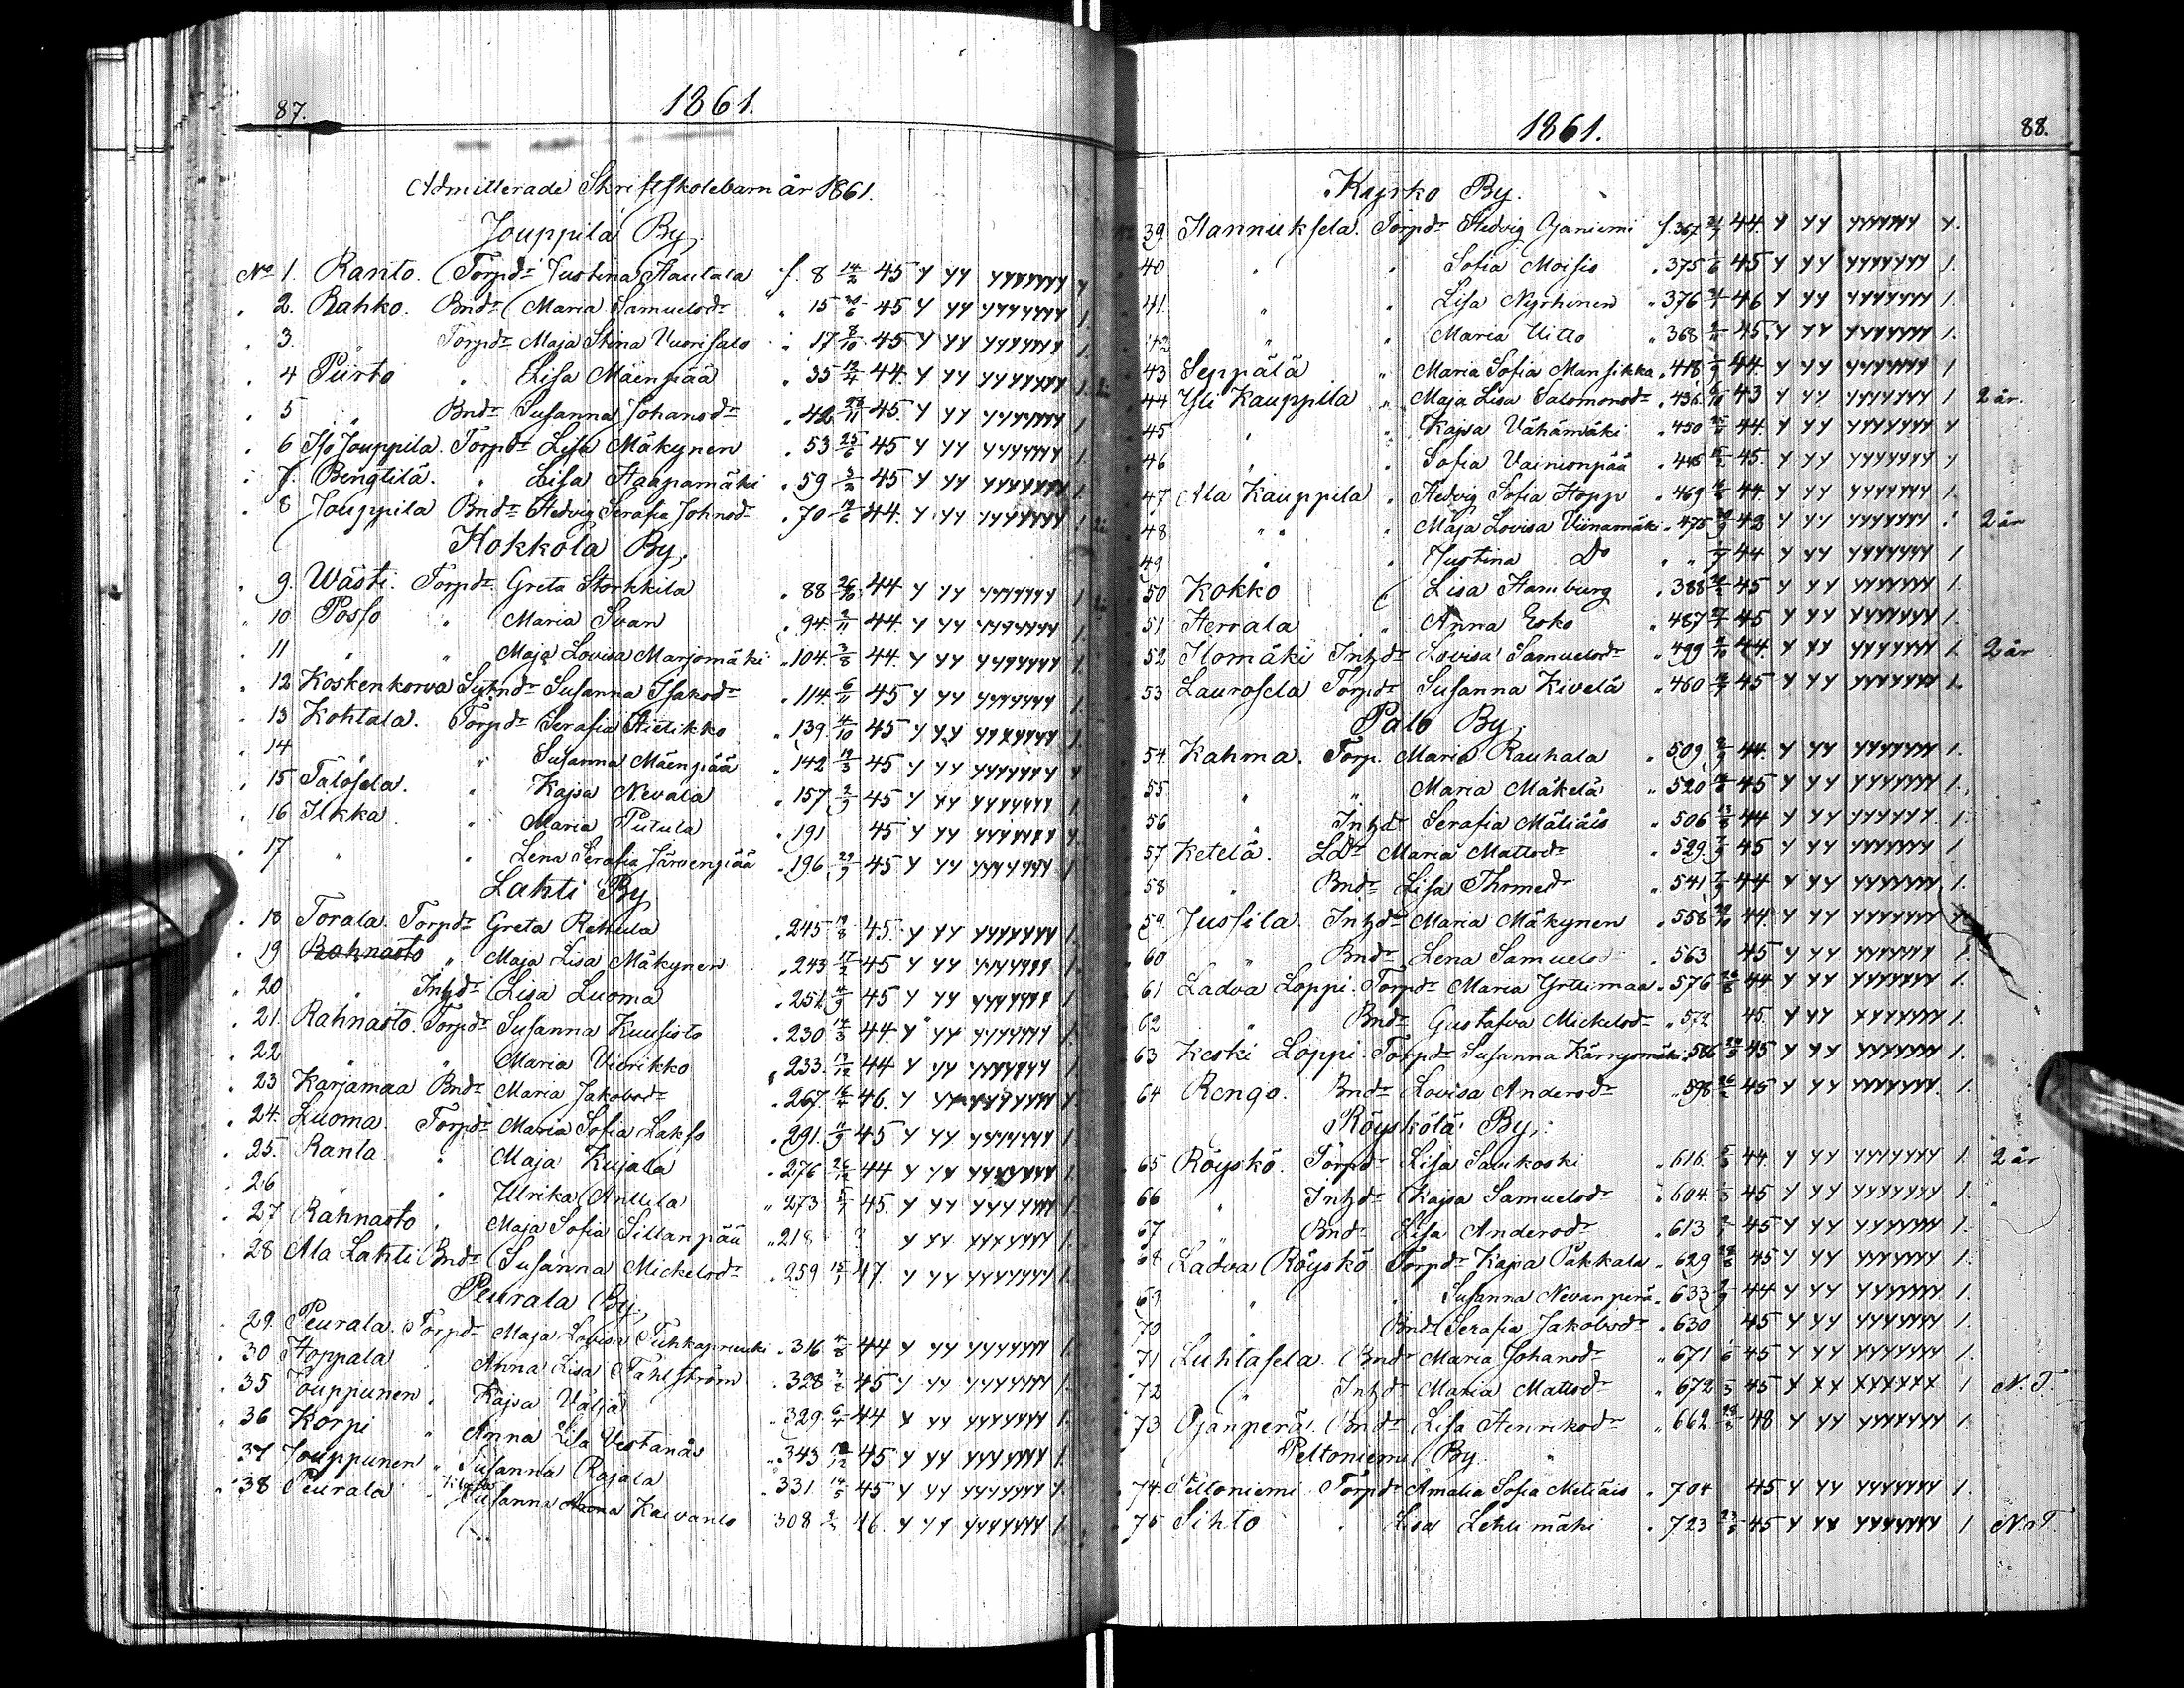 87.
1861.
Admitterade Skriftskolebarn år 1861.
Jouppila By.
No 1. Ranto. Torpdr Justina Hautala f. 8 14/2 45 y yy yyyyyyy y
" 2. Rahko. Bndr Maria Samuelsdr " 15 20/6 45 y yy yyyyyyy 1.
" 3. " Torpdr Maja Stina Vuorisalo " 17 8/10 45 y yy yyyyyyy 1.
" 4 Piirto " Lisa Mäenpää " 35 12/4 44. y yy yyyyyyy 1.
" 5 " Bndr Susanna Johansdr " 42 28/11 45. y yy yyyyyyy 1
" 6 Iso Jouppila. Torpdr Lisa Mäkynen " 53 25/6 45 y yy yyyyyyy 1.
" 7. Bengtilä. " Lisa Haapamäki " 59 3/2 45 y yy yyyyyyy 1.
" 8 Jouppila Bndr Hedvig Serafia Johnsdr " 70 19/6 44. y yy yyyyyyy 1
Kokkola By.
" 9. Wästi. Torpdr Greta Storkkila " 88 26/10 44 y yy yyyyyyy 1
" 10 Posso " Maria Svan " 94. 2/11 44. y yy yyyyyyy 1.
" 11 " " Maja Lovisa Marjomäki " 104. 3/8 44. y yy yyyyyyy 1.
" 12 Koskenkorva Sytndr Susanna Isaksdr " 114. 6/11 45 y yy yyyyyyy 1.
" 13 Kohtala. Torpdr Serafia Hietikko " 139. 4/10 45 y yy yyyyyyy 1
" 14 " " Susanna Mäenpää " 142 19/3 45 y yy yyyyyyy y
" 15 Talosela. " Kajsa Nevala " 157 2/9 45 y yy yyyyyyy 1.
" 16 Ilkka " Maria Putula " 191 45 y yy yyyyyyy y.
" 17 " " Lena Serafia Järvenpää " 196 29/9 45 y yy yyyyyyy 1
Lahti By
" 18 Torala. Torpdr Greta Rehula " 245 19/8 45. y yy yyyyyyy 1.
" 19 Rahnasto " Maja Lisa Mäkynen " 243 17/2 45 y yy yyyyyyy 1.
" 20 " Inhdr Lisa Luoma " 251. 11/9 45 y yy yyyyyyy 1.
" 21. Rahnasto. Torpdr Susanna Kuusisto " 230 14/3 44. y yy yyyyyyy 1.
" 22 " " Maria Vuorikko " 233. 13/12 44 y yy yyyyyyy 1
" 23 Karjamaa Bndr Maria Jakobsdr " 267. 16/4 46. y yy yyyyyyy y
" 24. Luoma. Torpdr Maria Sofia Lakso " 291. 11/9 45 y yy yyyyyyy 1
" 25. Ranta " Maja Kujala " 276 26/12 44 y yy yyyyyyy 1.
" 26 " " Ulrika Anttila " 273 5/7 45. y yy yyyyyyy 1.
" 27 Rahnasto " Maja Sofia Sillanpää " 218 ? y yy yyyyyyy 1.
" 28 Ala Lahti Bndr Susanna Mickelsdr " 259 15/7 47. y yy yyyyyyy 1.
Peurala By.
" 29. Peurala. Torpdr Maja Lovisa " 316 4/8 44 y yy yyyyyyy 1
" 30 Hoppala " Anna Lisa Tåhlström " 328 45 y yy yyyyyyy 1.
" 35 Jouppunen " Kajsa Väljä " 329. 6/4 44 y yy yyyyyyy 1.
" 36 Korpi " Anna Lisa Vestanås " 343 19/12 45 y yy yyyyyyy 1.
" 37 Jouppunen " Susanna Rajala " 331 14/5 45 y yy yyyyyyy y.
" 38 Peurala " Susanna Anna Kaivanto 308 46. y yy yyyyyyy 1.
1861.
88.
Kyrko By.
39. Hannuksela. Torpdr Hedvig Ojaniemi f. 367 44. y yy yyyyyyy y.
40 " " Sofia Moisio " 375 45 y yy yyyyyyy 1.
41. " " Lisa Nyrhinen " 376 46 y yy yyyyyyy 1.
42 " " Maria Uitto " 368 45. y yy yyyyyyy 1.
43 Seppälä " Maria Sofia Mansikka " 418 44. y yy yyyyyyy 1
44 Yli Kauppila " Maja Lisa Salomonsdr " 436. 6/10 43 y yy yyyyyyy 1 2 år.
45 " " Kajsa Vähämäki " 450 44. y yy yyyyyyy y
46 " " Sofia Vainionpää " 445 45. y yy yyyyyyy y
47 Ala Kauppila " Hedvig Sofia Hopp " 469 44. y yy yyyyyyy 1.
48 " " Maja Lovisa Viinamäki " 475 42 y yy yyyyyyy 1 2 år
49 " " Justina Do " " 44 y yy yyyyyyy 1
50 Kokko " Lisa Hamburg " 388 45 y yy yyyyyyy 1.
51 Herrala " Anna Esko " 487 45 y yy yyyyyyy 1.
52 Ilomäki Inhdr Lovisa Samuelsdr " 499 44. y yy yyyyyyy 1. 2 år
53 Laurosela Torpdr Susanna Kivelä " 460 45 y yy yyyyyyy 1.
Palo By.
54. Kahma. Torp. Maria Rauhala " 509 44. y yy yyyyyyy 1.
55 " " Maria Mäkelä " 520 45 y yy yyyyyyy 1.
56 " Inhdr Serafia Mätiäis " 506 13/8 44 y yy yyyyyyy. 1.
57 Ketelä. Ldr Maria Mattsdr " 529. 45 y yy yyyyyyy 1
58 " Bndr Lisa Thomsdr " 541 44 y yy yyyyyyy 1.
59. Jussila. Inhdr Maria Mäkynen " 558 29/10 44. y yy yyyyyyy y.
60 " Bndr Lena Samuelsdr " 563 45 y yy yyyyyyy 1.
61 Ladva Loppi. Torpdr Maria Yrttimaa " 576 26/8 44 y yy yyyyyyy 1.
62 " Bndr Gustafva Mickelsdr " 572 45. y yy yyyyyyy 1.
63 Keski Loppi. Torpdr Susanna Kärrymäki " 586 45 y yy yyyyyyy 1.
64 Rengo. Bndr Lovisa Andersdr " 598 26/2 45 y yy yyyyyyy. 1.
Röyskölä By.
65 Röyskö. Torpdr Lisa Saukoski " 616. 5/3 44. y yy yyyyyyy 1. 2 år
66 " Inhdr Kajsa Samuelsdr " 604. 45 y yy yyyyyyy 1.
67 " Bndr Lisa Andersdr " 613 45 y yy yyyyyyy 1.
68 Ladva Röyskö Torpdr Kajsa Pakkala " 629 28/8 45 y yy yyyyyyy 1.
69 " " Susanna Nevanperä " 633 44 y yy yyyyyyy 1.
70 " Bndr Serafia Jakobsdr " 630 45 y yy yyyyyyy 1.
71 Luhtasela. Bndr Maria Johansdr " 671 1/6 45 y yy yyyyyyy 1.
72 " Inhdr Maria Mattsdr " 672 45 y yy yyyyyyy 1 N. T.
73 Ojanperä. Bndr Lisa Henriksdr " 662 48 y yy yyyyyyy 1.
Peltoniemi By.
" 74. Peltoniemi Torpdr Amalia Sofia Metiäis " 704 45 y yy yyyyyyy 1.
" 75 Sihto " Lisa Lehtimäki " 723 45 y yy yyyyyyy 1 N. T.